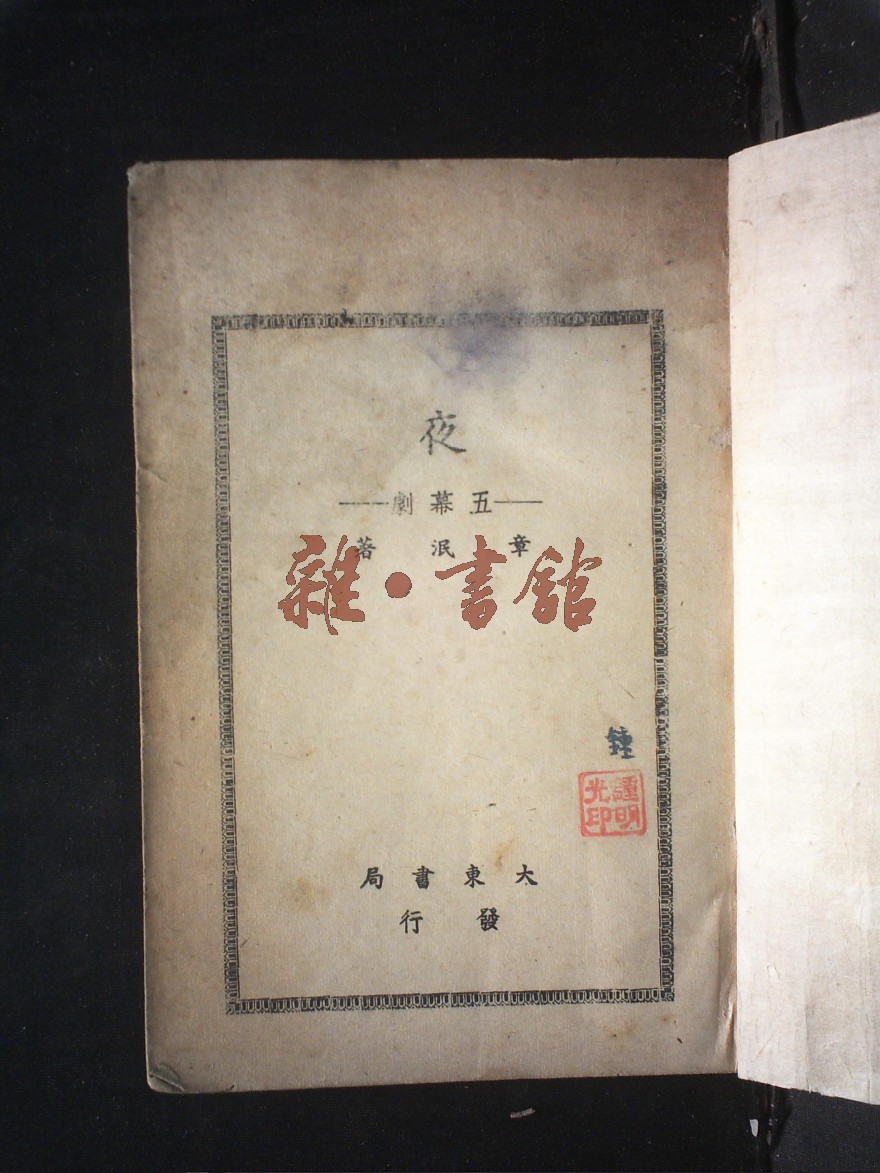 夜
——五幕劇——
章泯著
雜·書館
鍾
鍾明光印
大東書局
發行